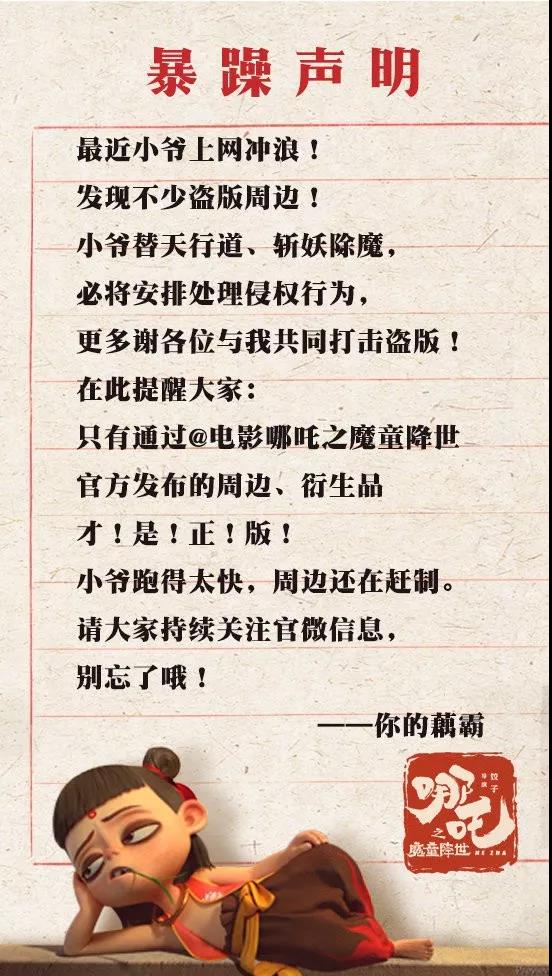 暴躁声明
最近小爷上网冲浪！
发现不少盗版周边！
小爷替天行道、斩妖除魔，
必将安排处理侵权行为，
更多谢各位与我共同打击盗版！
在此提醒大家：
只有通过@电影哪吒之魔童降世
官方发布的周边、衍生品
才！是！正！版！
小爷跑得太快，周边还在赶制。
请大家持续关注官微信息，
别忘了哦！
——你的藕霸
哪吒
导演 饺子
之
魔童降世 NE ZHA